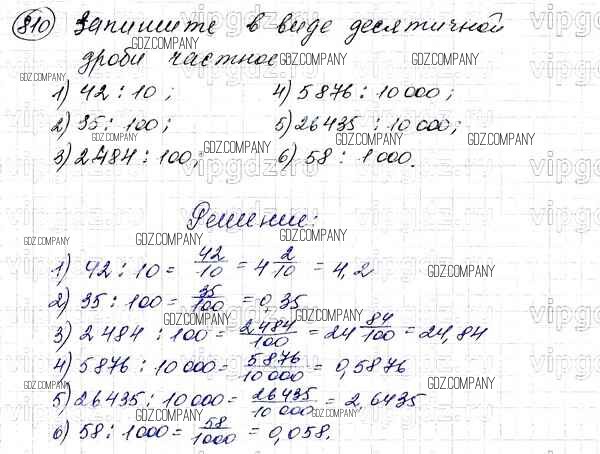 810 Запишите в виде десятичной
дроби частное
1) 42 : 10 ; 4) 5876 : 10 000 ;
2) 35 : 100 ; 5) 26435 : 10 000 ;
3) 2484 : 100 ; 6) 58 : 1 000.
Решение:
1) 42 : 10 = 42/10 = 4 2/10 = 4,2
2) 35 : 100 = 35/100 = 0,35
3) 2484 : 100 = 2484/100 = 24 84/100 = 24,84
4) 5876 : 10 000 = 5876/10 000 = 0,5876
5) 26435 : 10 000 = 26435/10 000 = 2,6435
6) 58 : 1000 = 58/1000 = 0,058.